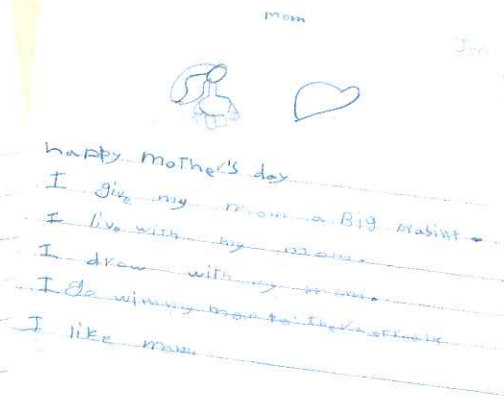 mom
happy mother's day
I give my mom a Big prasint
I live with my mom.
I draw with my mom.
I go
I like mom.